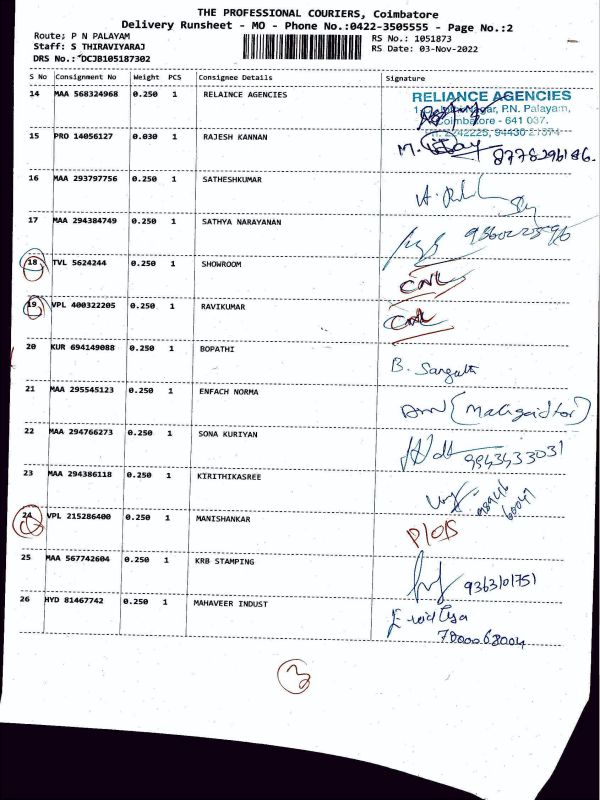 THE PROFESSIONAL COURIERS, Coimbatore
Delivery Runsheet - MO - Phone No.:0422-3505555 - Page No.:2
Route; P N PALAYAM
RS No.: 1051873
Staff: S THIRAVIYARAJ
RS Date: 03-Nov-2022
DRS No.: DCJB105187302
S No Consignment No Weight PCS Consignee Details Signature
14 MAA 568324968 0.250 1 RELAINCE AGENCIES
RELIANCE AGENCIES
Nagar, P.N. Palayam,
Coimbatore - 641 037.
15 PRO 14056127 0.030 1 RAJESH KANNAN
16 MAA 293797756 0.250 1 SATHESHKUMAR
17 MAA 294384749 0.250 1 SATHYA NARAYANAN
18 TVL 5624244 0.250 1 SHOWROOM
19 VPL 400322205 0.250 1 RAVIKUMAR
20 KUR 694149088 0.250 1 BOPATHI B.
21 MAA 295545123 0.250 1 ENFACH NORMA
22 MAA 294766273 0.250 1 SONA KURIYAN
23 MAA 294386118 0.250 1 KIRITHIKASREE
24 VPL 215286400 0.250 1 MANISHANKAR
25 MAA 567742604 0.250 1 KRB STAMPING 9363101751
26 HYD 81467742 0.250 1 MAHAVEER INDUST
7800068004
3